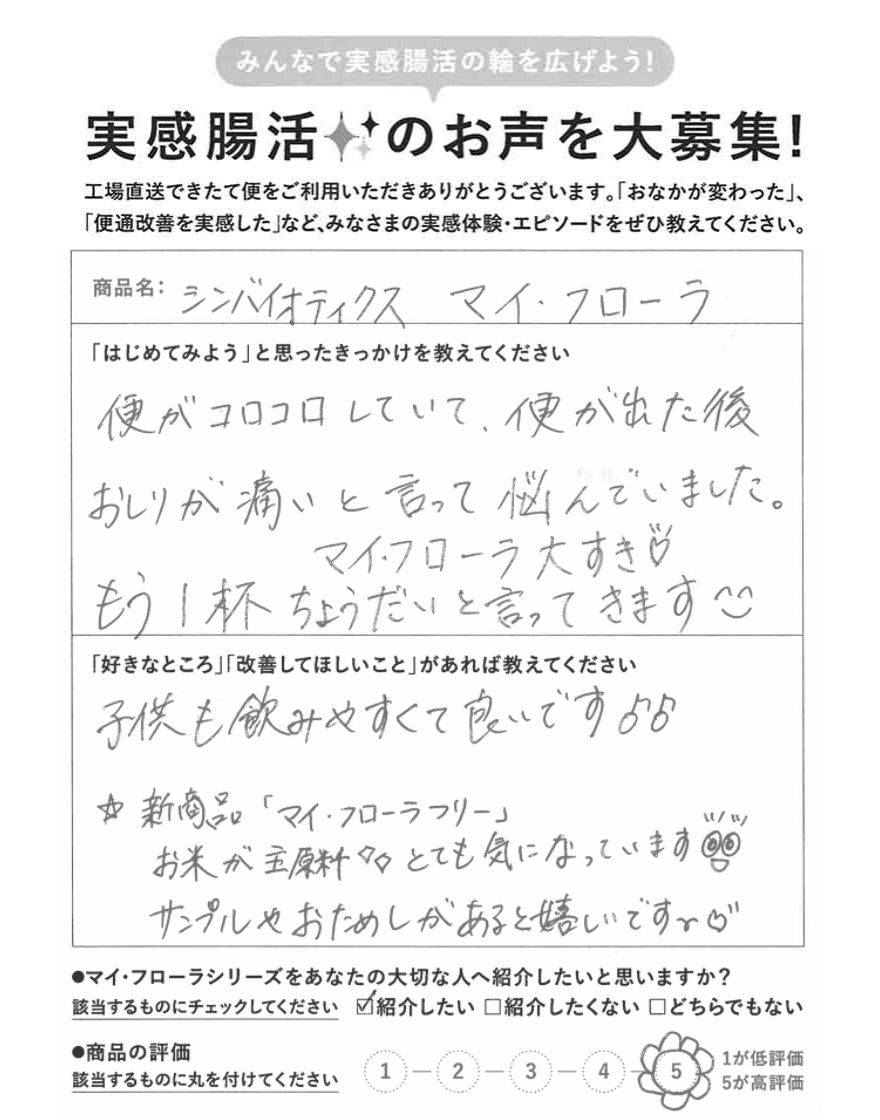 みんなで実感腸活の輪を広げよう!
実感腸活のお声を大募集!
工場直送できたて便をご利用いただきありがとうございます。「おなかが変わった」、
「便通改善を実感した」など、みなさまの実感体験・エピソードをぜひ教えてください。
商品名: シンバイオティクス マイ・フローラ
「はじめてみよう」と思ったきっかけを教えてください
便がコロコロしていて、便が出た後
おしりが痛いと言って悩んでいました。
マイ・フローラ大すき♡
もう1杯ちょうだいと言ってきます
「好きなところ」「改善してほしいこと」があれば教えてください
子供も飲みやすくて良いです♪♪
☆新商品「マイ・フローラフリー」
お米が主原料◇◇とても気になっています
サンプルやおためしがあると嬉しいです〜♡
●マイ・フローラシリーズをあなたの大切な人へ紹介したいと思いますか?
該当するものにチェックしてください ☑紹介したい □紹介したくない □どちらでもない
●商品の評価
該当するものに丸を付けてください
1 2 3 4 5
1が低評価
5が高評価